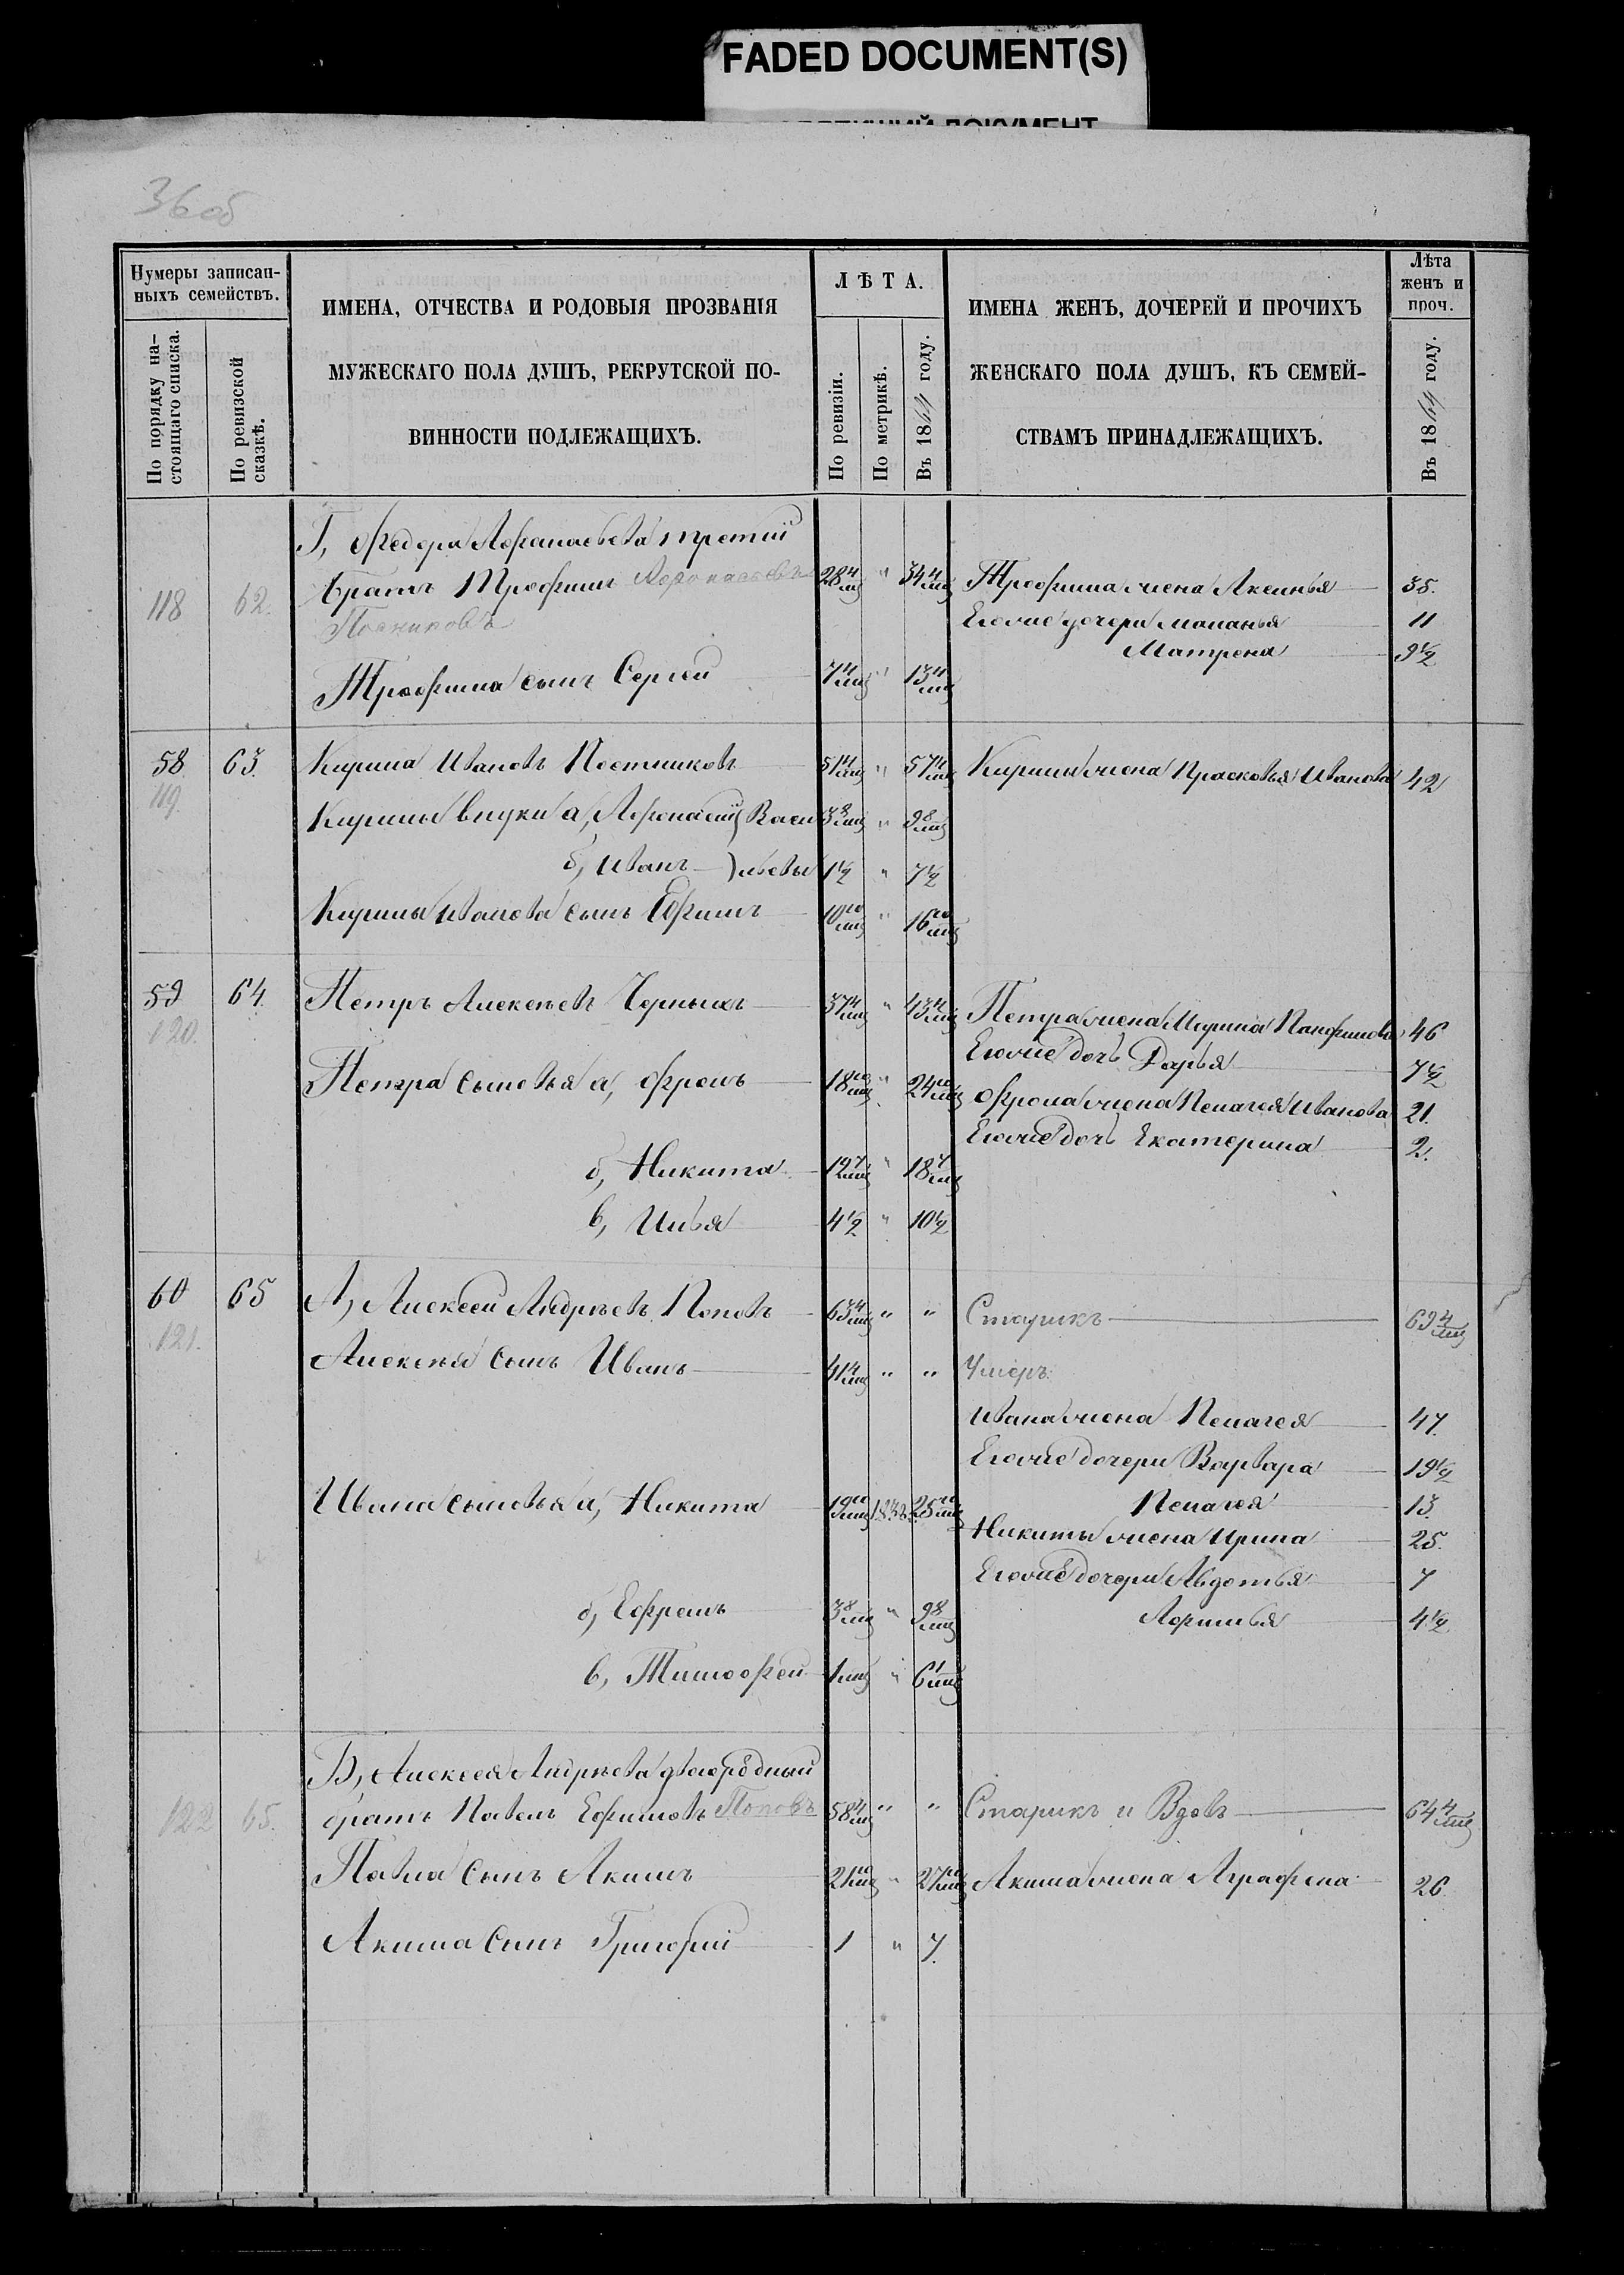 FADED DOCUMENT(S)
36 об
Нумеры записан-
ныхъ семействъ.
По порядку на-
стоящаго списка.
По ревизской
сказкѣ.
ИМЕНА, ОТЧЕСТВА И РОДОВЫЯ ПРОЗВАНІЯ
МУЖЕСКАГО ПОЛА ДУШЪ, РЕКРУТСКОЙ ПО-
ВИННОСТИ ПОДЛЕЖАЩИХЪ.
ЛѢТА.
По ревизіи.
По метрикѣ.
Въ 1864 году.
ИМЕНА ЖЕНЪ, ДОЧЕРЕЙ И ПРОЧИХЪ
ЖЕНСКАГО ПОЛА ДУШЪ, КЪ СЕМЕЙ-
СТВАМЪ ПРИНАДЛЕЖАЩИХЪ.
Лѣта
женъ и
проч.
Въ 1864 году.
Г, Федора Афанасьева третій
118 62. братъ Трофимъ Афонасьевъ 28 4/мц " 34 4/мц Трофима жена Аксинья 35.
Его же дочери Маланья 11
Матрена 9 1/2
Трофима сынъ Сергей 7 4/мц " 13 4/мц
58 63. Кирила Ивановъ Постниковъ 51 4/мц " 57 4/мц Кирилы жена Прасковья Иванова 42
119.
Кирилы внуки а, Афонасий Васи 3 8/мц " 9 8/мц
б, Иванъ ) льевы 1 1/2 " 7 1/2
Кирилы Иванова сынъ Ефимъ 10 10/мц " 16 10/мц
59 64. Петръ Алексѣевъ Черныхъ 37 4/мц " 43 4/мц Петра жена Марина Панфилова 46
120.
Его же дочь Дарья 7 1/2
Петра сыновья а, Фролъ 18 10/мц " 24 10/мц Фрола жена Пелагея Иванова 21.
Его же дочь Екатерина 2.
б, Никита 12 7/мц " 18 7/мц
в, Илья 4 1/2 " 10 1/2
60 65 А, Алексей Андрѣевъ Поповъ 63 4/мц " " Старикъ 69 4/мц
121.
Алексѣя сынъ Иванъ 41 4/мц " " Умеръ.
Ивана жена Пелагея 47.
Его же дочери Варвара 19 1/2
Ивана сыновья а, Никита 19 10/мц 1838 25 10/мц Пелагея 13.
Никиты жена Ирина 25.
Его же дочери Авдотья 7
б, Ефремъ 3 8/мц " 9 8/мц
4 1/2
в, Тимофей 1 мц " 6 1/мц
Б, Алексея Андрѣева двоюродный
122 65. братъ Павелъ Ефимовъ Поповъ 58 4/мц " " Старикъ и Вдовъ 64 4/мц
Павла сынъ Акимъ 21 10/мц " 27 10/мц Акима жена Аграфена 26.
Акима сынъ Григорий 1 " 7.